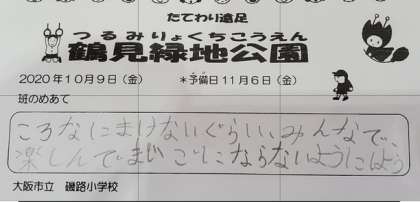 たてわり遠足
つるみりょくちこうえん
鶴見緑地公園
2020年10月9日(金) *予備日11月6日(金)
班のめあて
ころなにまけないぐらい、みんなで、
楽しんでまいごにならないようにしよう
大阪市立 磯路小学校